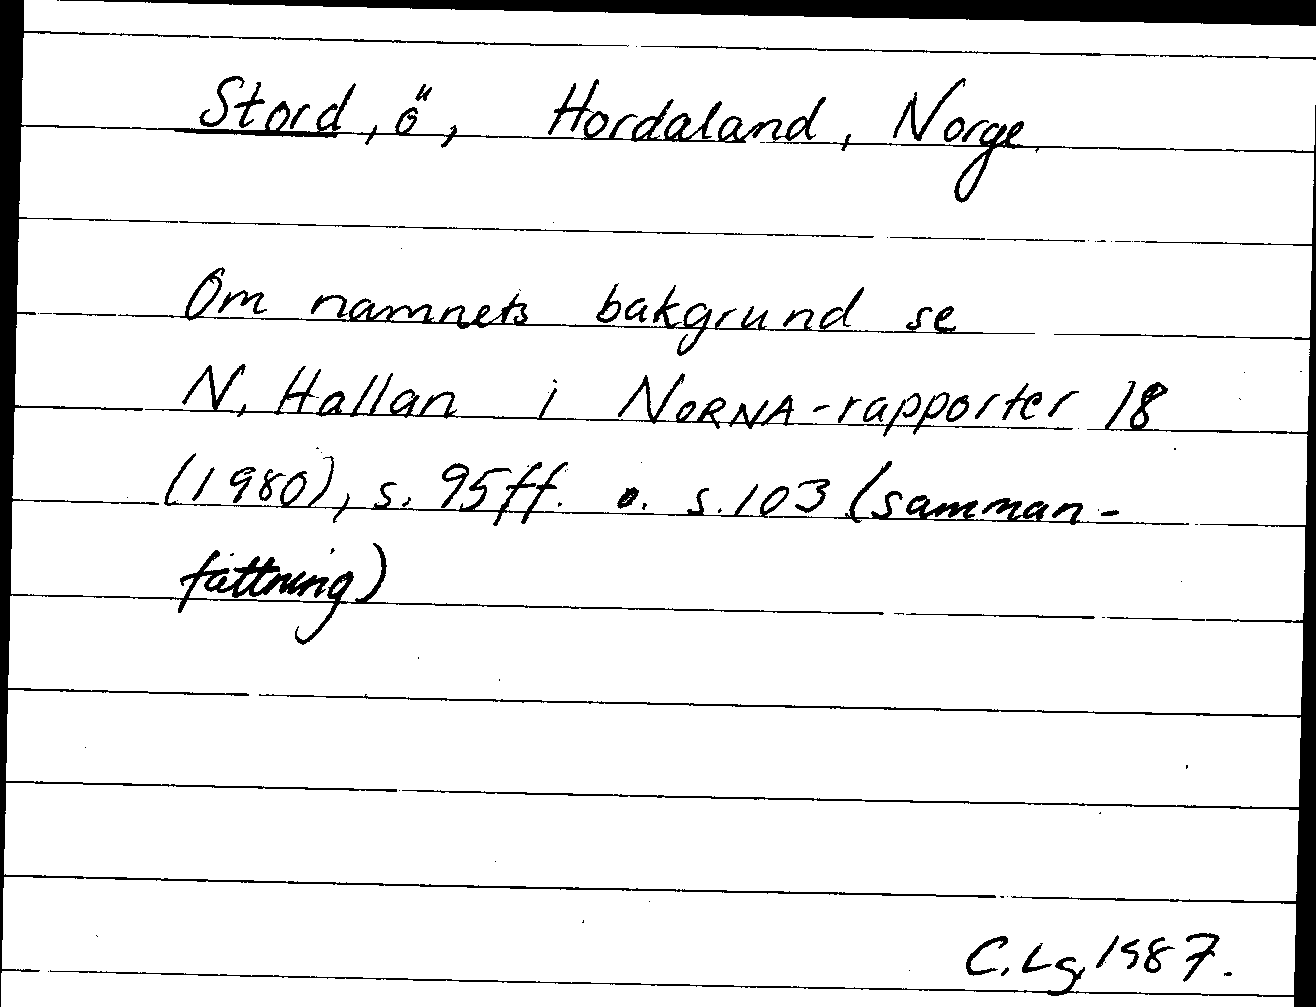 Stord, ö, Hordaland, Norge.
Om namnets bakgrund se
N. Hallan i NORNA-rapporter 18
(1980), s. 95ff. o. s. 103 (samman-
fattning)
C. Lg. 1987.